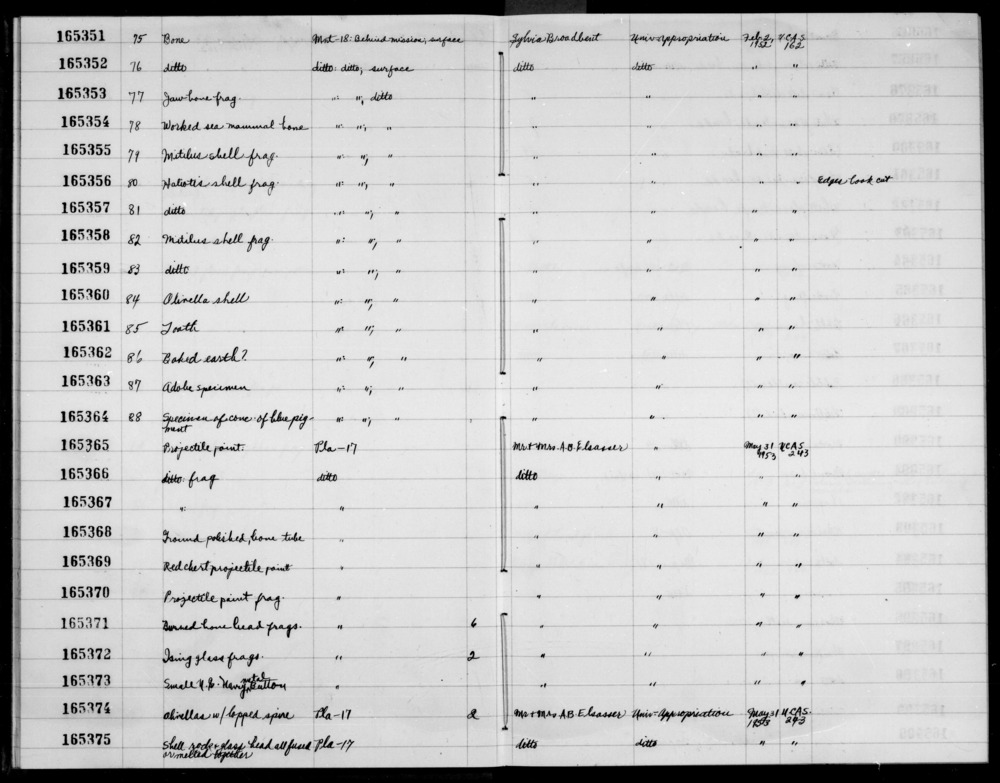 165351 75 Bone Mnt-18: Behind mission, surface Sylvia Broadbent Univ-Appropriation Feb. 2, 1952 UCAS 162
165352 76 ditto ditto: ditto; surface ditto ditto " "
165353 77 Jaw-bone frag. ": ", ditto " " " "
165354 78 Worked sea mammal bone ": ", " " " " "
165355 79 Mitilus shell frag. ": ", " " " " "
165356 80 Haliotis shell frag. ": ", " " " " " Edges look cut
165357 81 ditto ": ", " " " " "
165358 82 Mitilus shell frag. ": ", " " " " "
165359 83 ditto ": ", " " " " "
165360 84 Olivella shell ": ", " " " " "
165361 85 Tooth ": ", " " " " "
165362 86 Baked earth? ": ", " " " " "
165363 87 Adobe specimen ": ", " " " " "
165364 88 Specimen of conc. of blue pig-
ment ": ", " " " " "
165365 Projectile point. Pla-17 Mr. + Mrs. A.B. Elsasser " May 31 1953 UCAS 243
165366 ditto: frag ditto ditto " " "
165367 ": " " " " "
165368 Ground polished, bone tube " " " " "
165369 Red chert projectile point " " " " "
165370 Projectile point frag. " " " " "
165371 Burned bone bead frags. " 6 " " " "
165372 Ising glass frags. " 2 " " " "
165373 Small U.S. Navy metal Button " " " " "
165374 olivellas w/ lopped spire Pla-17 2 Mr + Mrs AB Elsasser Univ-Appropriation May 31 1953 UCAS. 243
165375 Shell, rock + glass bead all fused
or melted together Pla-17 ditto ditto " "